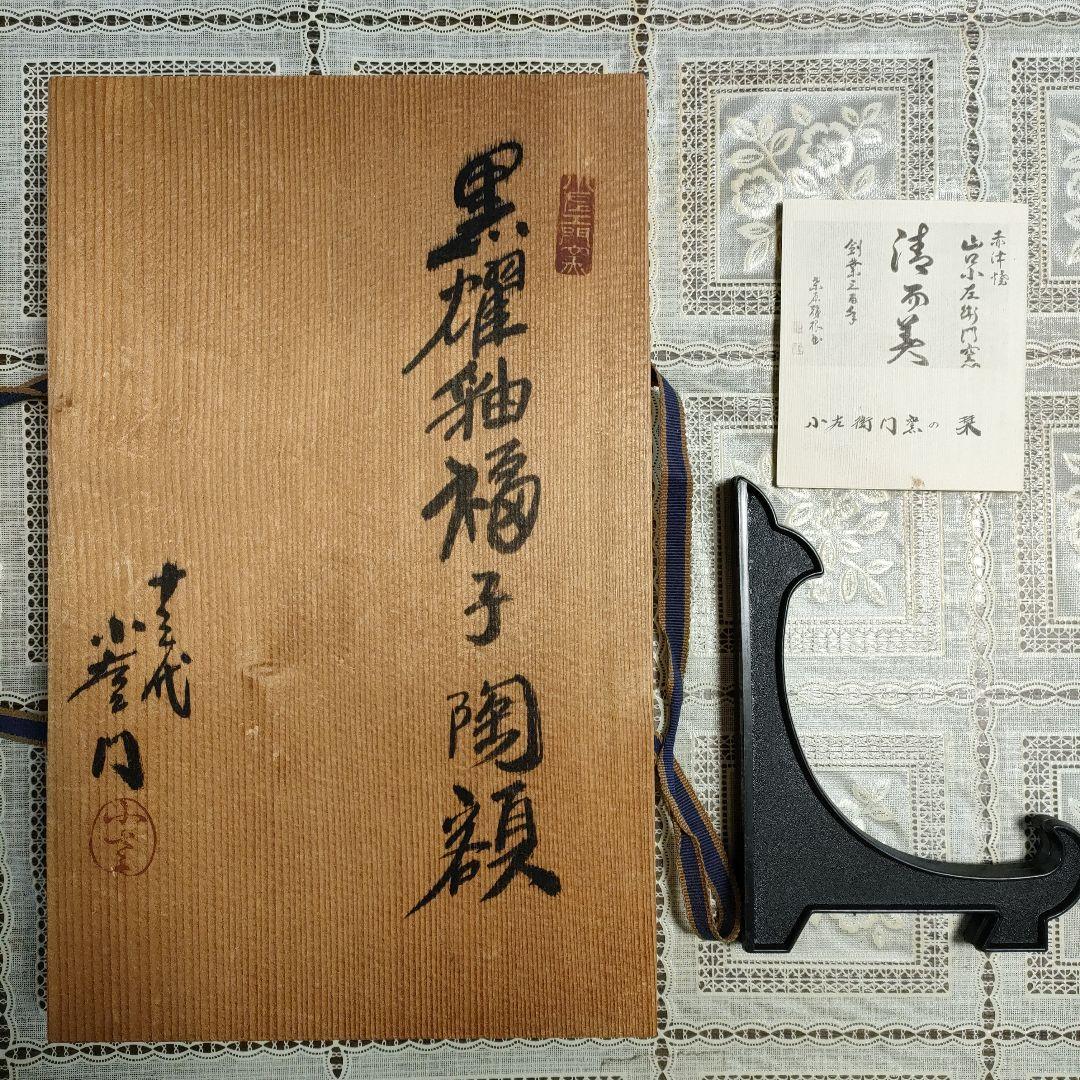 小左衛門窯
黒耀釉福子陶額
十三代
小左衛門
赤津焼
山口小左衛門窯
清而美
創業三百年
小左衛門窯の栞